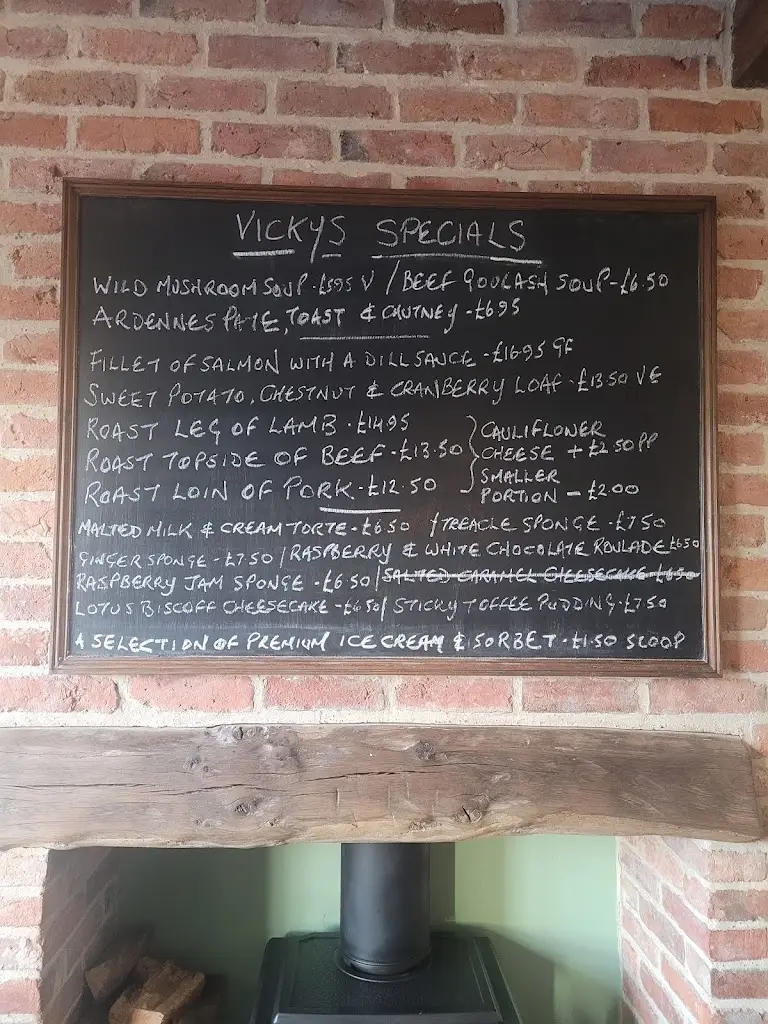 VICKYS SPECIALS
WILD MUSHROOM SOUP - £5.95 V / BEEF GOULASH SOUP - £6.50
ARDENNES PATE, TOAST & CHUTNEY - £6.95
FILLET OF SALMON WITH A DILL SAUCE - £16.95 GF
SWEET POTATO, CHESTNUT & CRANBERRY LOAF - £13.50 VE
ROAST LEG OF LAMB - £14.95
ROAST TOPSIDE OF BEEF - £13.50
ROAST LOIN OF PORK - £12.50
CAULIFLOWER
CHEESE + £2.50 PP
SMALLER
PORTION - £2.00
MALTED MILK & CREAM TORTE - £6.50 / TREACLE SPONGE - £7.50
GINGER SPONGE - £7.50 / RASPBERRY & WHITE CHOCOLATE ROULADE £6.50
RASPBERRY JAM SPONGE - £6.50 / SALTED CARAMEL CHEESECAKE £6.50
LOTUS BISCOFF CHEESECAKE - £6.50 / STICKY TOFFEE PUDDING - £7.50
A SELECTION OF PREMIUM ICE CREAM & SORBET - £1.50 SCOOP